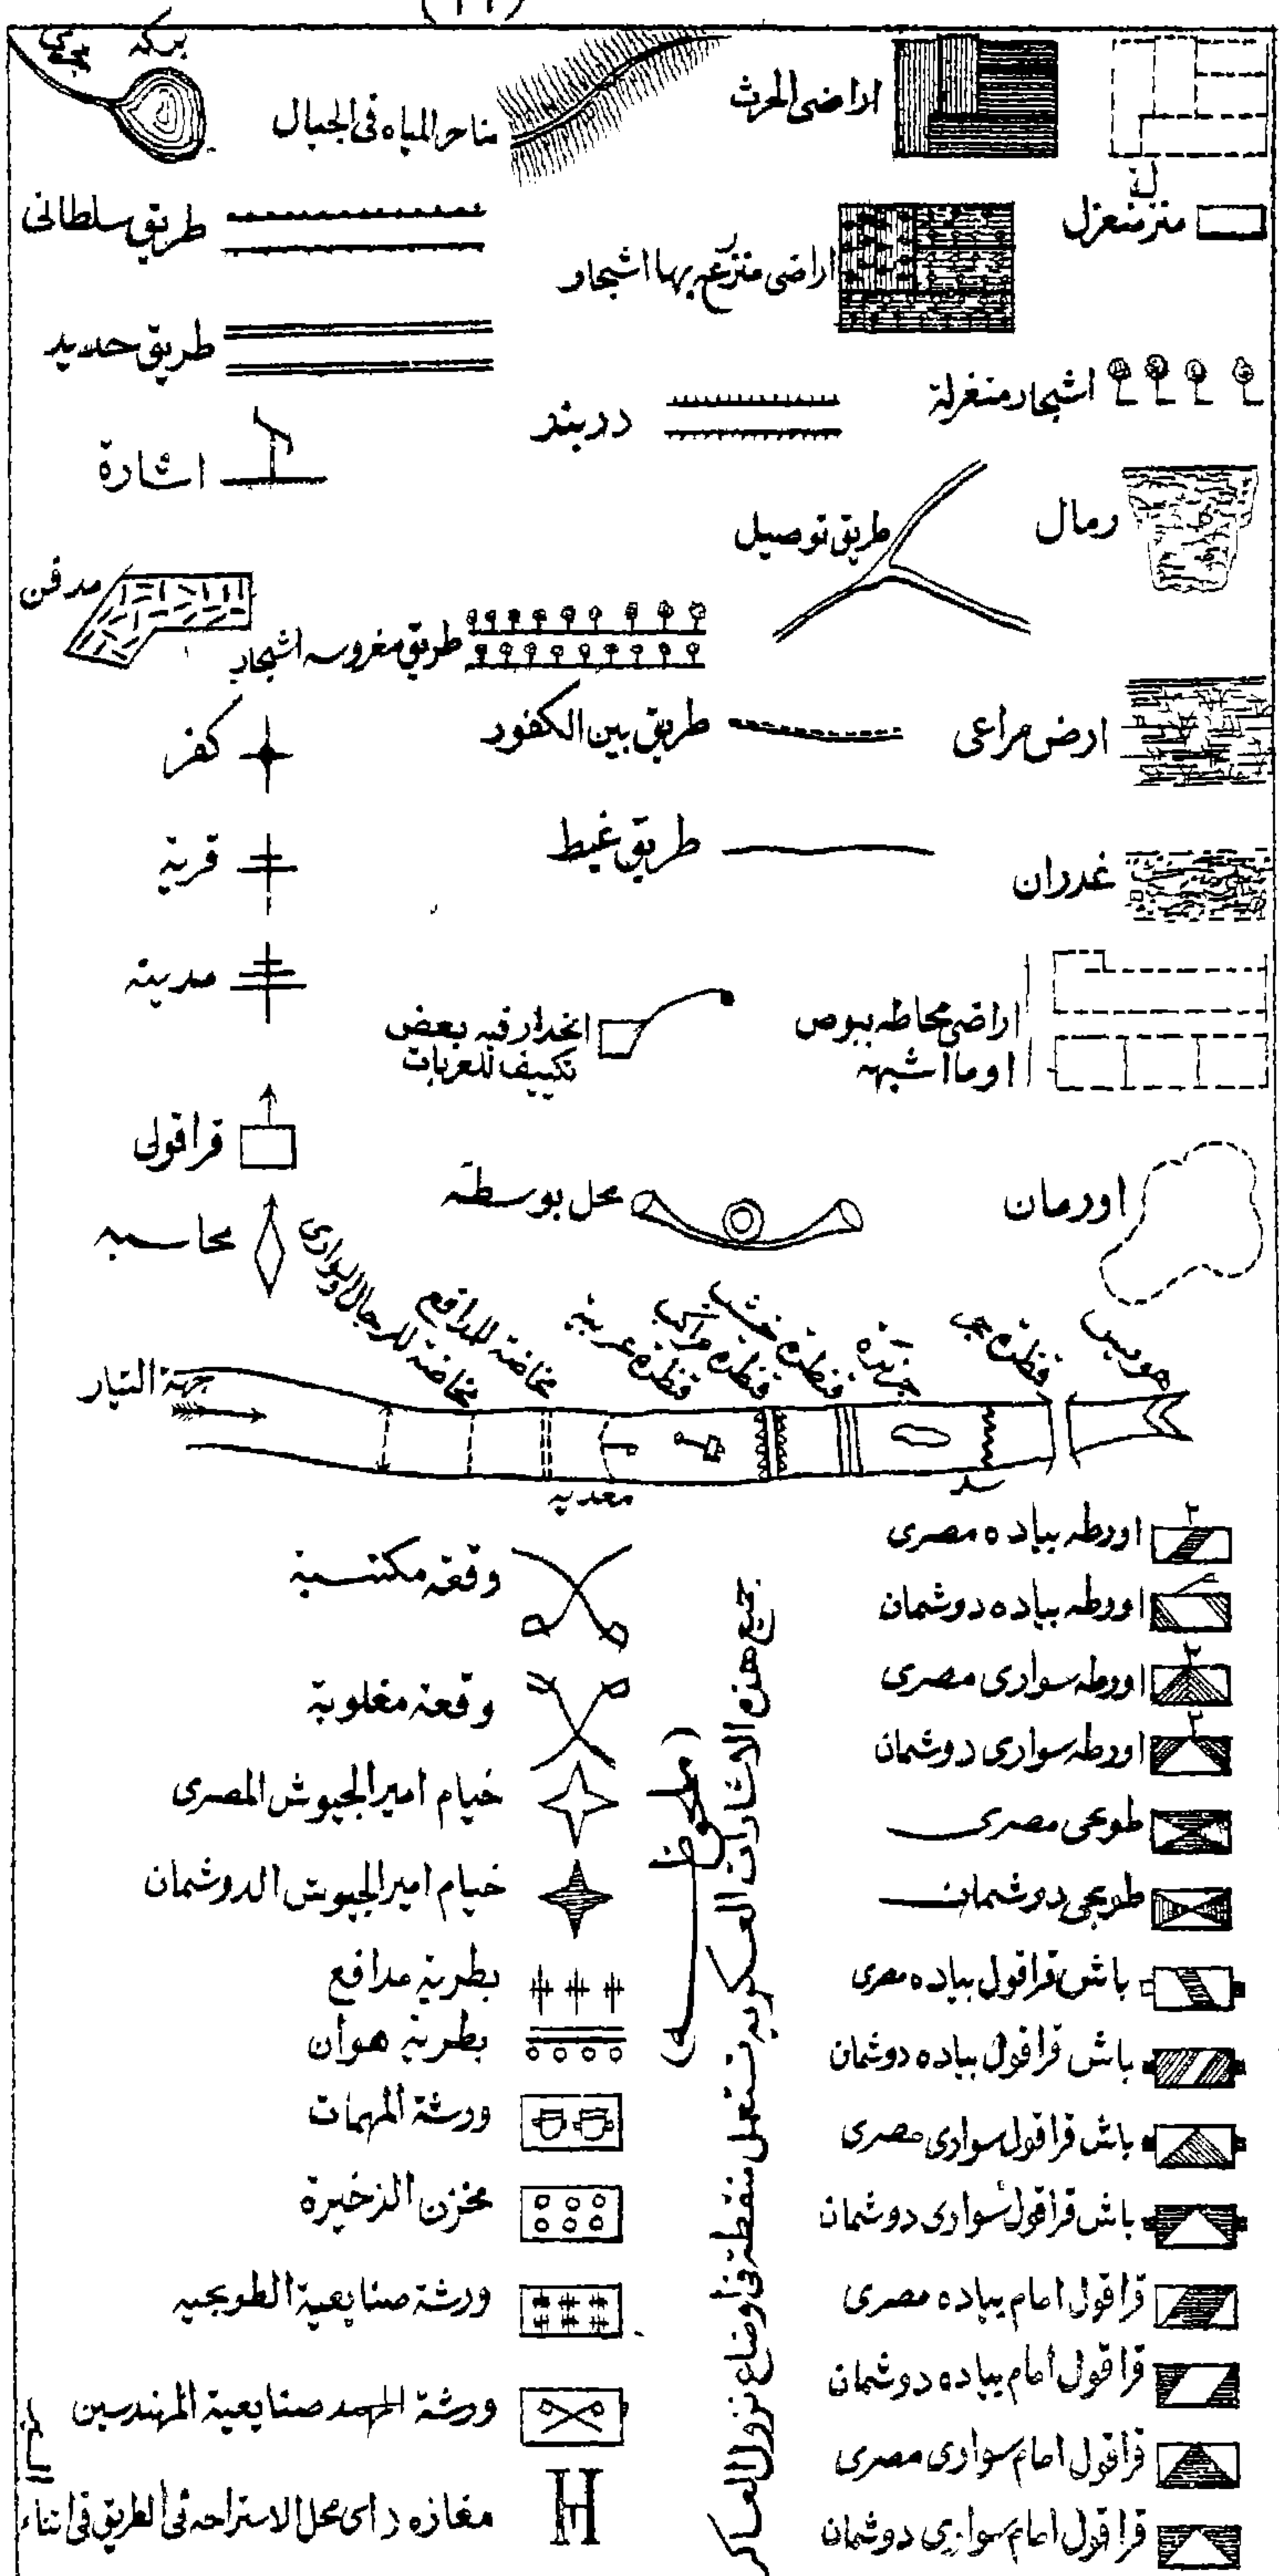 اراضى الحرث
مناحر المياه فى الجبال
بركه
مجرى
منزل منعزل
اراضى منزرعه بها اشجار
طريق سلطانى
طريق حديد
اشجار منغرلة
دربند
اشارة
رمال
طريق توصيل
مدفن
طريق مغروسه اشجار
ارض مراعى
طريق بين الكفور
كفر
غدران
طريق غيط
قرية
اراضى محاطه ببوص
او ما اشبه
انحدار فيه بعض
تكييف للعربات
مدينه
قراقول
اورمان
محل بوسطه
محاسبه
هويس
قنطرة حجر
جزيرة
قنطرة خشب
قنطرة مراكب
قنطرة عربيه
مخاضة للمدافع
مخاضة للرجال والسوارى
جهة التيار
سد
معديه
اورطه بياده مصرى
اورطه بياده دوشمان
اورطه سوارى مصرى
اورطه سوارى دوشمان
طوبجى مصرى
طوبجى دوشمان
باش قراقول بياده مصرى
باش قراقول بياده دوشمان
باش قراقول سوارى مصرى
باش قراقول سوارى دوشمان
قراقول امام بياده مصرى
قراقول امام بياده دوشمان
قراقول امام سوارى مصرى
قراقول امام سوارى دوشمان
جميع هذه الاشارات العسكريه تستعمل منقطة فى أوضاع نزول العساكر
وقعة مكتسبة
وقعة مغلوبة
خيام امير الجيوش المصرى
خيام امير الجيوش الدوشمان
بطرية مدافع
بطرية هوان
ورشة المهمات
مخزن الذخيرة
ورشة صنايعية الطوبجيه
ورشة صنايعية المهندسين
مغازه داى محل الاستراحه فى الطريق فى اثناء
السير